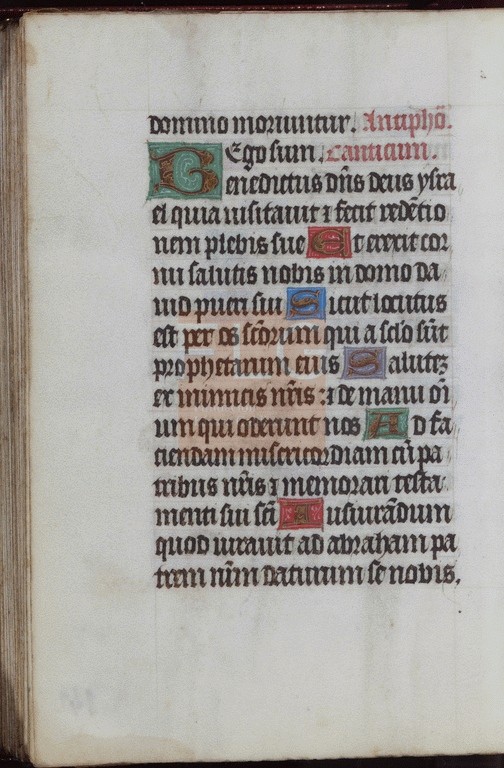 domino moriuntur. Antiphō.
Ego sum. Canticum.
Benedictus dn̄s deus ysra
el quia uisitauit ⁊ fecit redēptio
nem plebis sue Et erexit cor
nu salutis nobis in domo da
uid pueri sui Sicut locutus
est per os scōrum qui a sc̄lo sūt
prophetarum eius Salutē
ex inimicis nr̄is : ⁊ de manu oī
um qui oderunt nos Ad fa
ciendam misericordiam cū pa
tribus nr̄is ⁊ memorari testa
menti sui sc̄i Iusiurādum
quod iurauit ad abraham pa
trem nr̄m daturum se nobis.